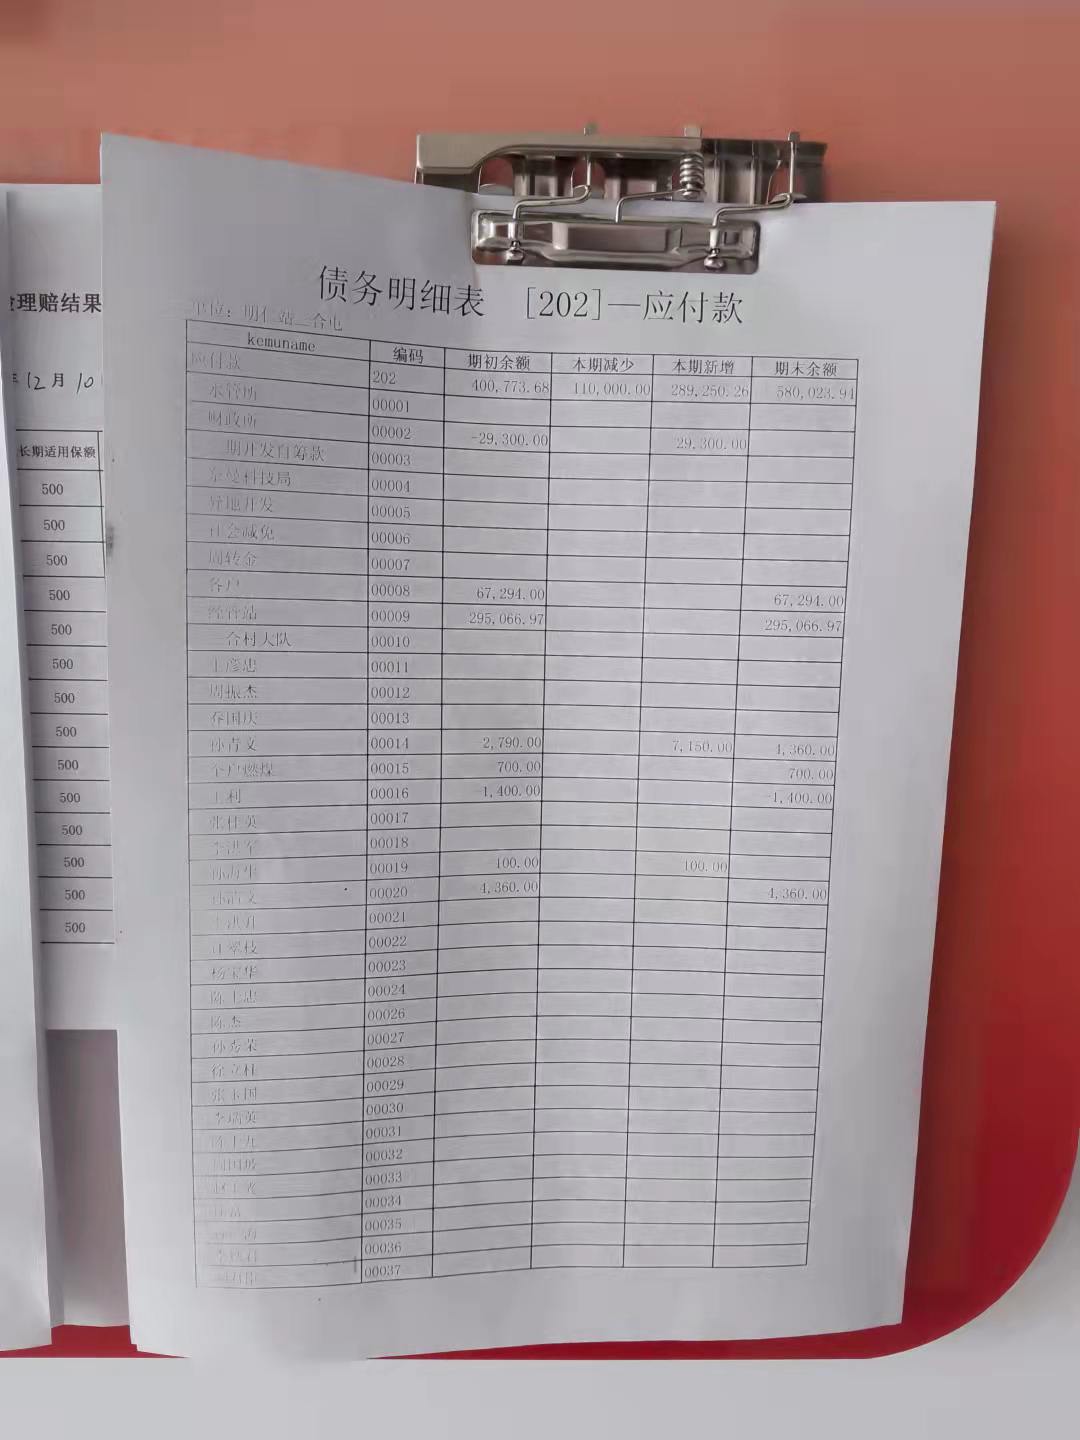 理赔结果
年12月10
长期适用保额
500
500
500
500
500
500
500
500
500
500
500
500
500
500
债务明细表 [202]—应付款
单位：明仁站
kemuname 编码 期初余额 本期减少 本期新增 期末余额
应付款 202 400,773.68 110,000.00 289,250.26 580,023.94
水管所 00001
财政所 00002 -29,300.00 29,300.00
期开发自筹款 00003
奈曼科技局 00004
异地开发 00005
社会减免 00006
周转金 00007
各户 00008 67,294.00 67,294.00
经管站 00009 295,066.97 295,066.97
合村大队 00010
王彦忠 00011
周振杰 00012
国庆 00013
孙青文 00014 2,790.00 7,150.00 4,360.00
户燃煤 00015 700.00 700.00
王利 00016 -1,400.00 -1,400.00
张桂英 00017
李洪军 00018
00019 100.00 100.00
00020 4,360.00 4,360.00
00021
江翠枝 00022
杨宝华 00023
00024
陈杰 00026
孙秀荣 00027
徐立柱 00028
张玉国 00029
李瑞英 00030
00031
00032
00033
00034
00035
00036
00037